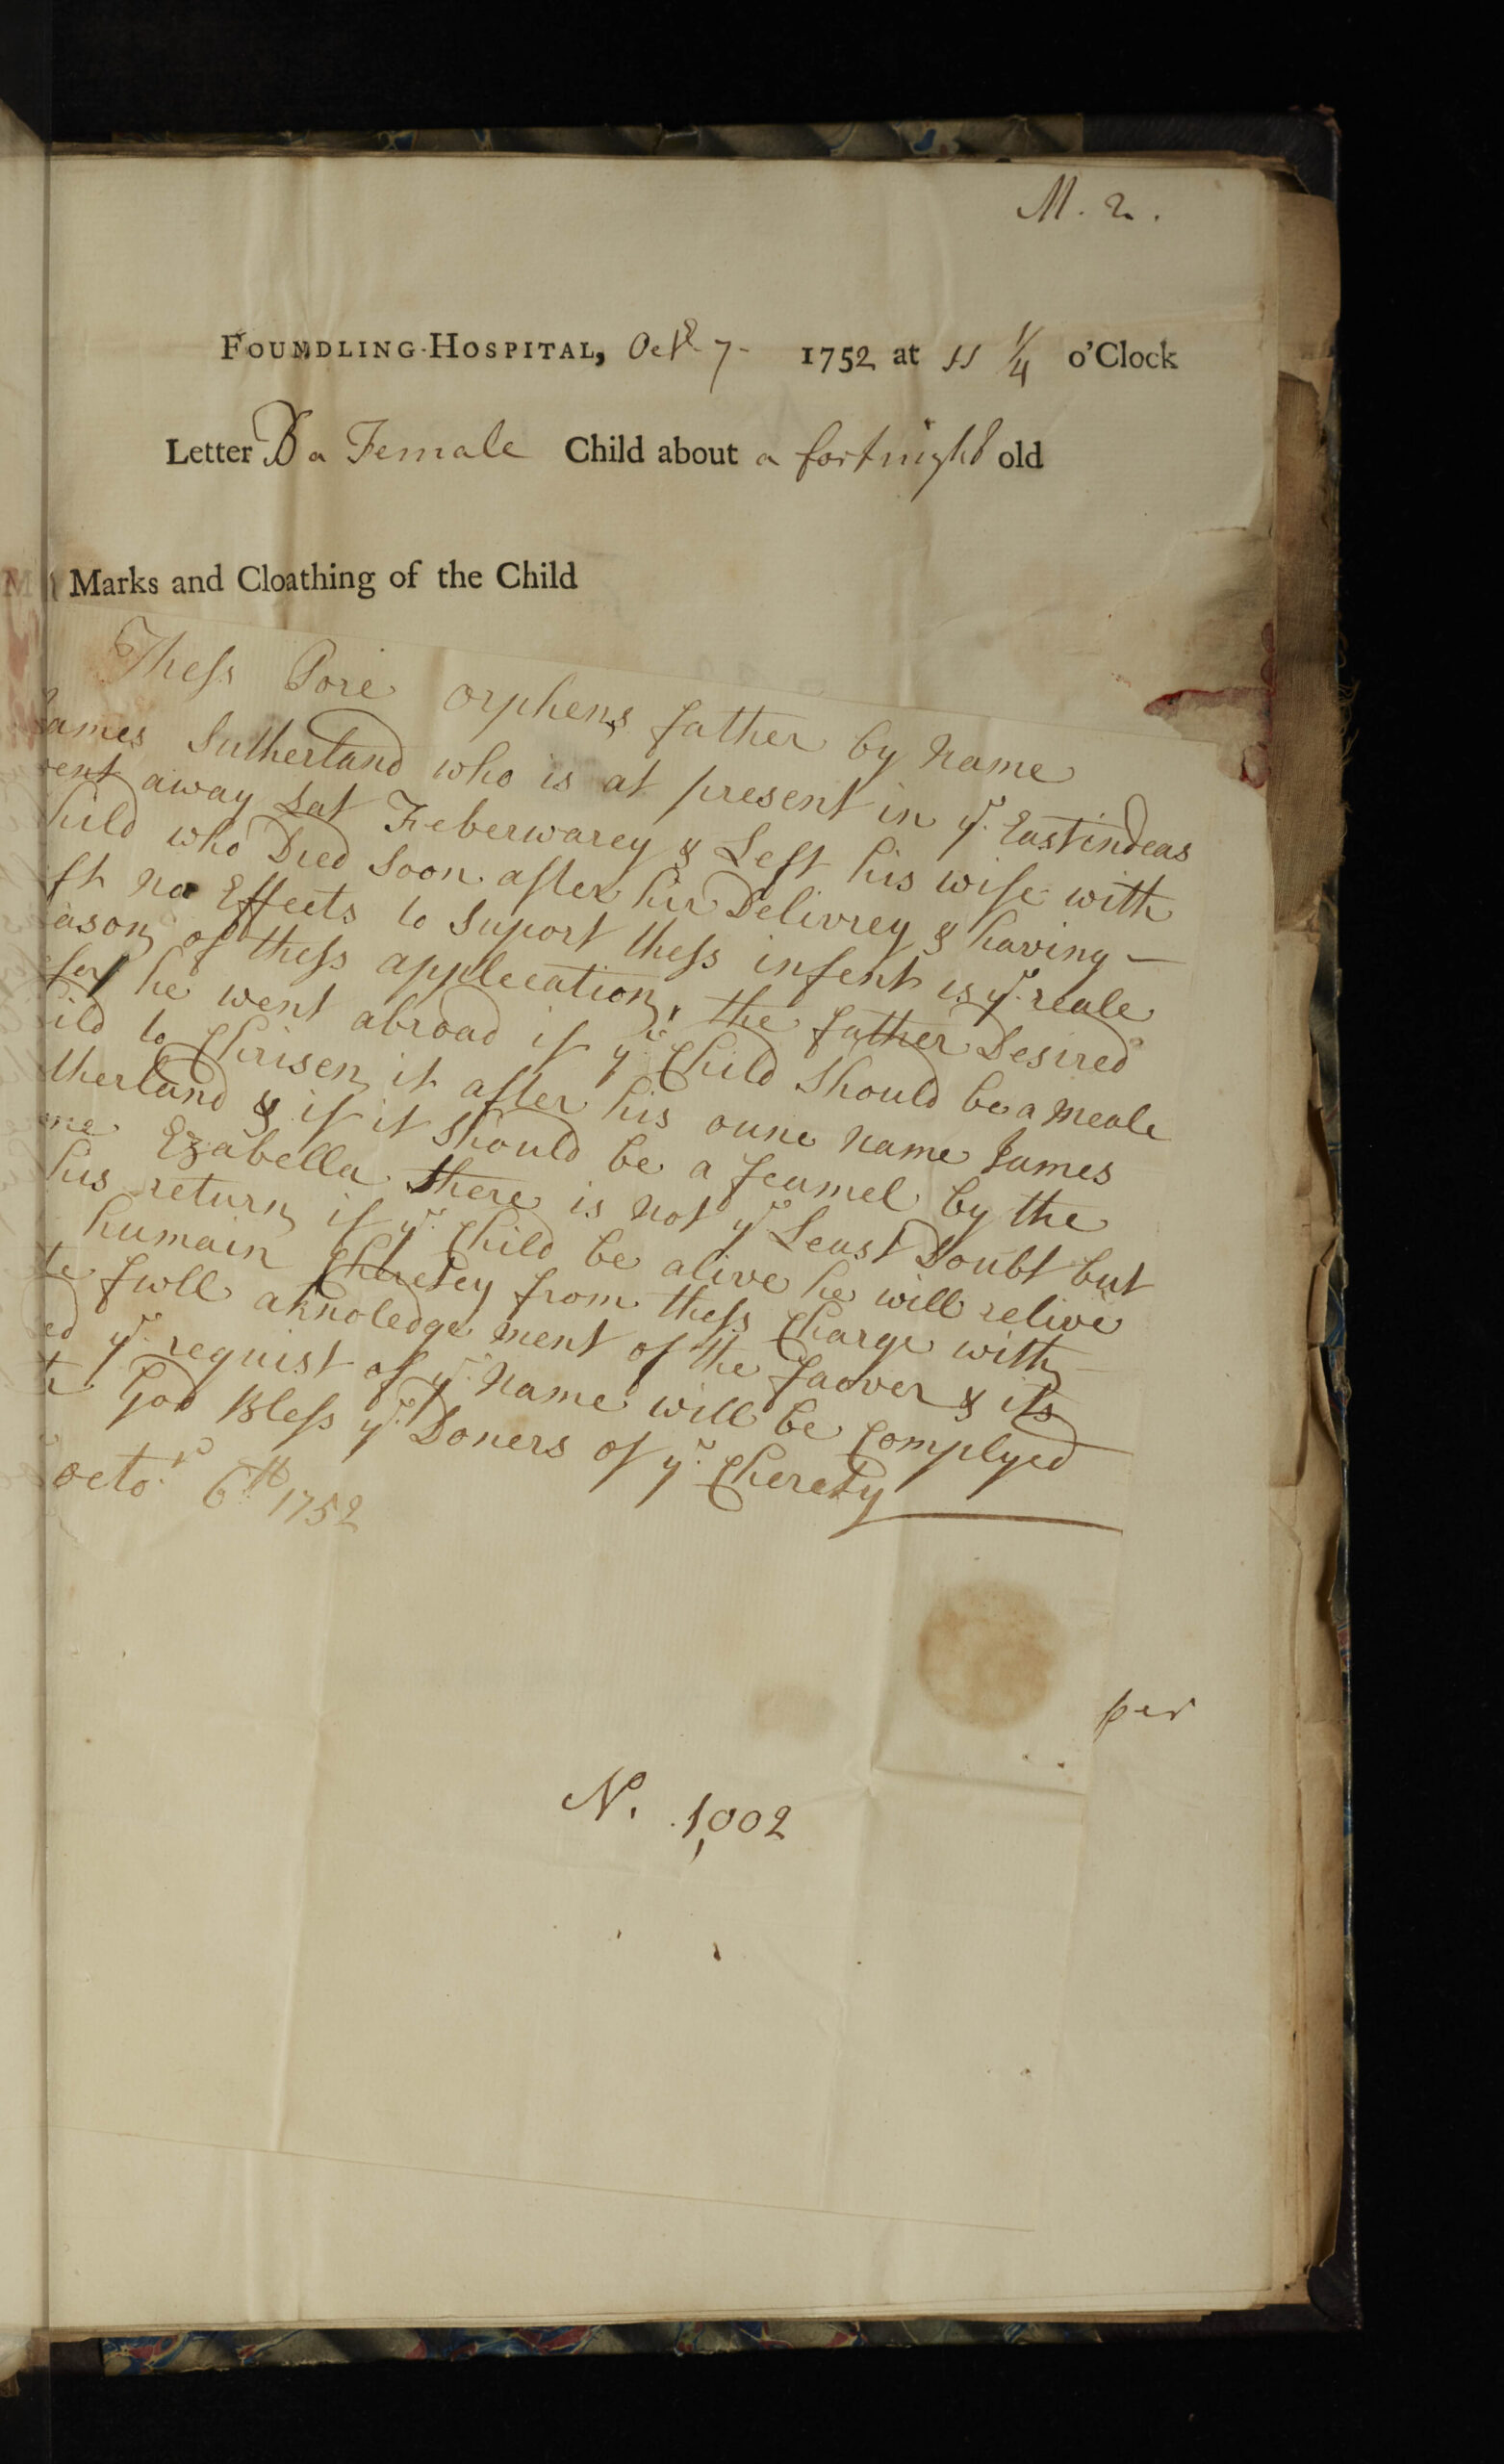 M. 2.
FOUNDLING-HOSPITAL, Octr. 7- 1752 at 11 1/4 o'Clock
Letter B a Female Child about a fortnight old
Marks and Cloathing of the Child
Thess Pore orphens father by name
James Sutherland who is at present in ye. Eastindeas
went away Lat Feberwarey & Left his wife with
hild who Died Soon after hir Delivrey & having —
ft no Effects to Suport thess infent is ye. reale
eason of thess applecation, the father Desired
for he went abroad if ye. Child Should be a meale
ild to Chrisen it after his oune name James
therland & if it Should be a feamel by the
me Ezabella there is not ye Least Doubt but
his return if ye. Child be alive he will relive
humain Cherety from thess Charge with
te fwll aknoledge ment of the faover & its
ed ye. requist of ye. name will be Complyed
th God Bless ye. Doners of ye. Cherety
octo.r 6th 1752
per
No. 1,002